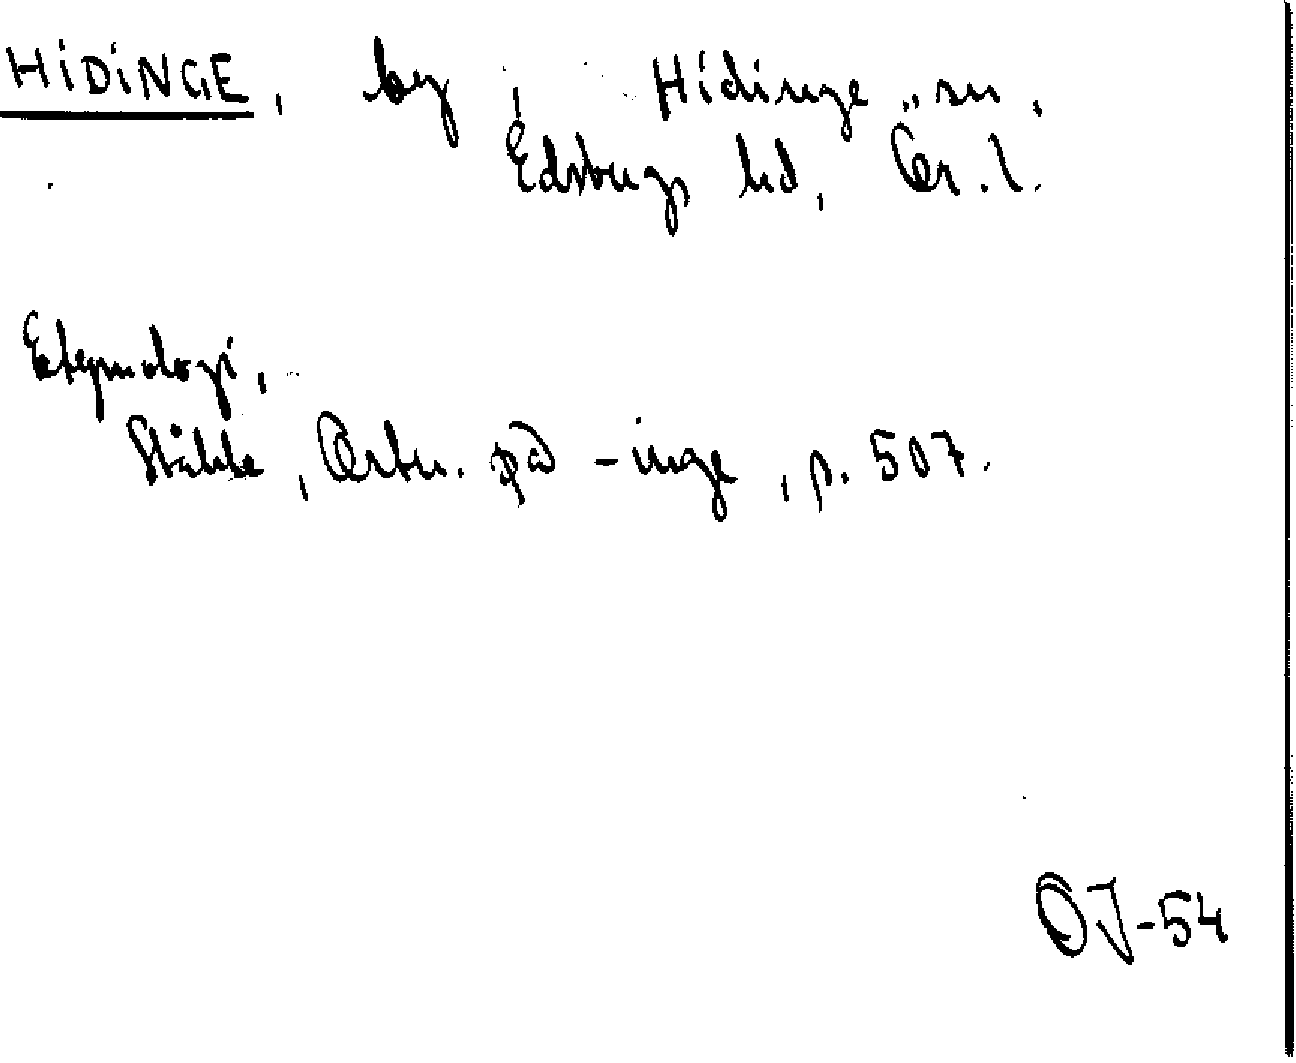 HIDINGE, by, Hidinge sn,
Edsbergs hd, Ör. l.
Etymologi,
Ståhle, Ortn. på -inge, p. 507.
OJ-54